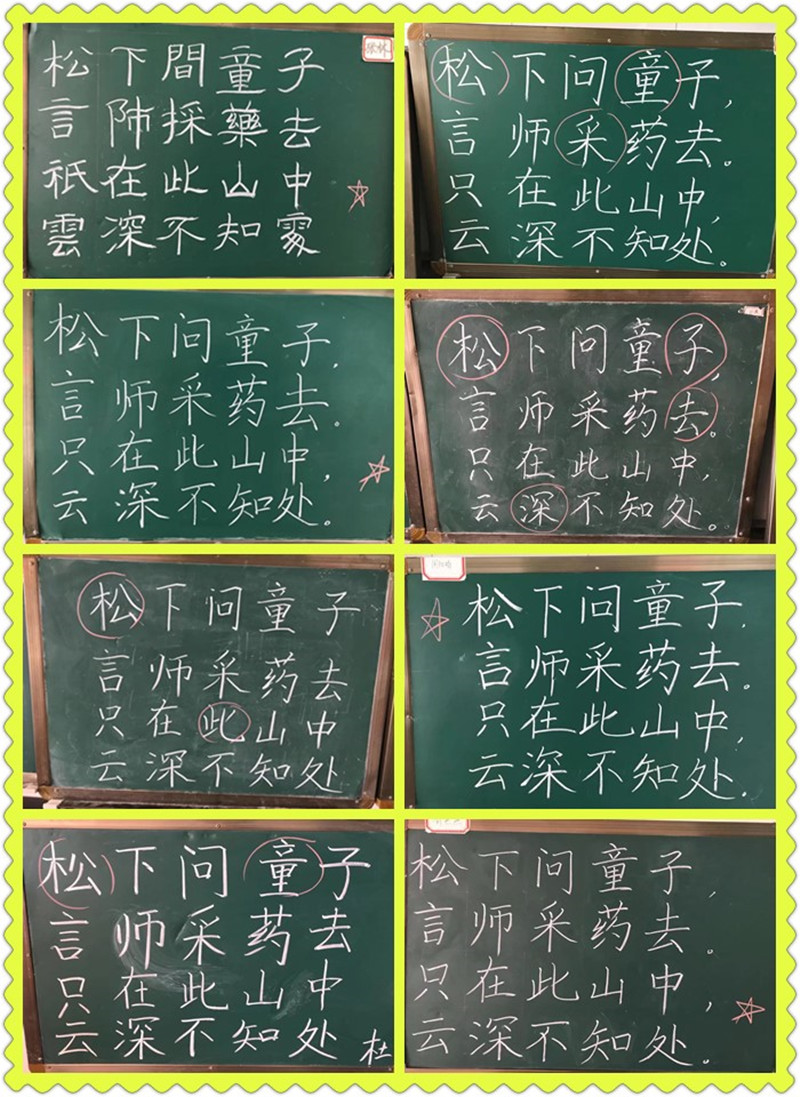 松下間童子
言師採藥去
祇在此山中
雲深不知處
松下问童子，
言师采药去。
只在此山中，
云深不知处。
松下问童子，
言师采药去。
只在此山中，
云深不知处。
松下问童子，
言师采药去。
只在此山中，
云深不知处。
松下问童子
言师采药去
只在此山中
云深不知处
松下问童子，
言师采药去。
只在此山中，
云深不知处。
松下问童子
言师采药去
只在此山中
云深不知处
杜
松下问童子，
言师采药去。
只在此山中，
云深不知处。